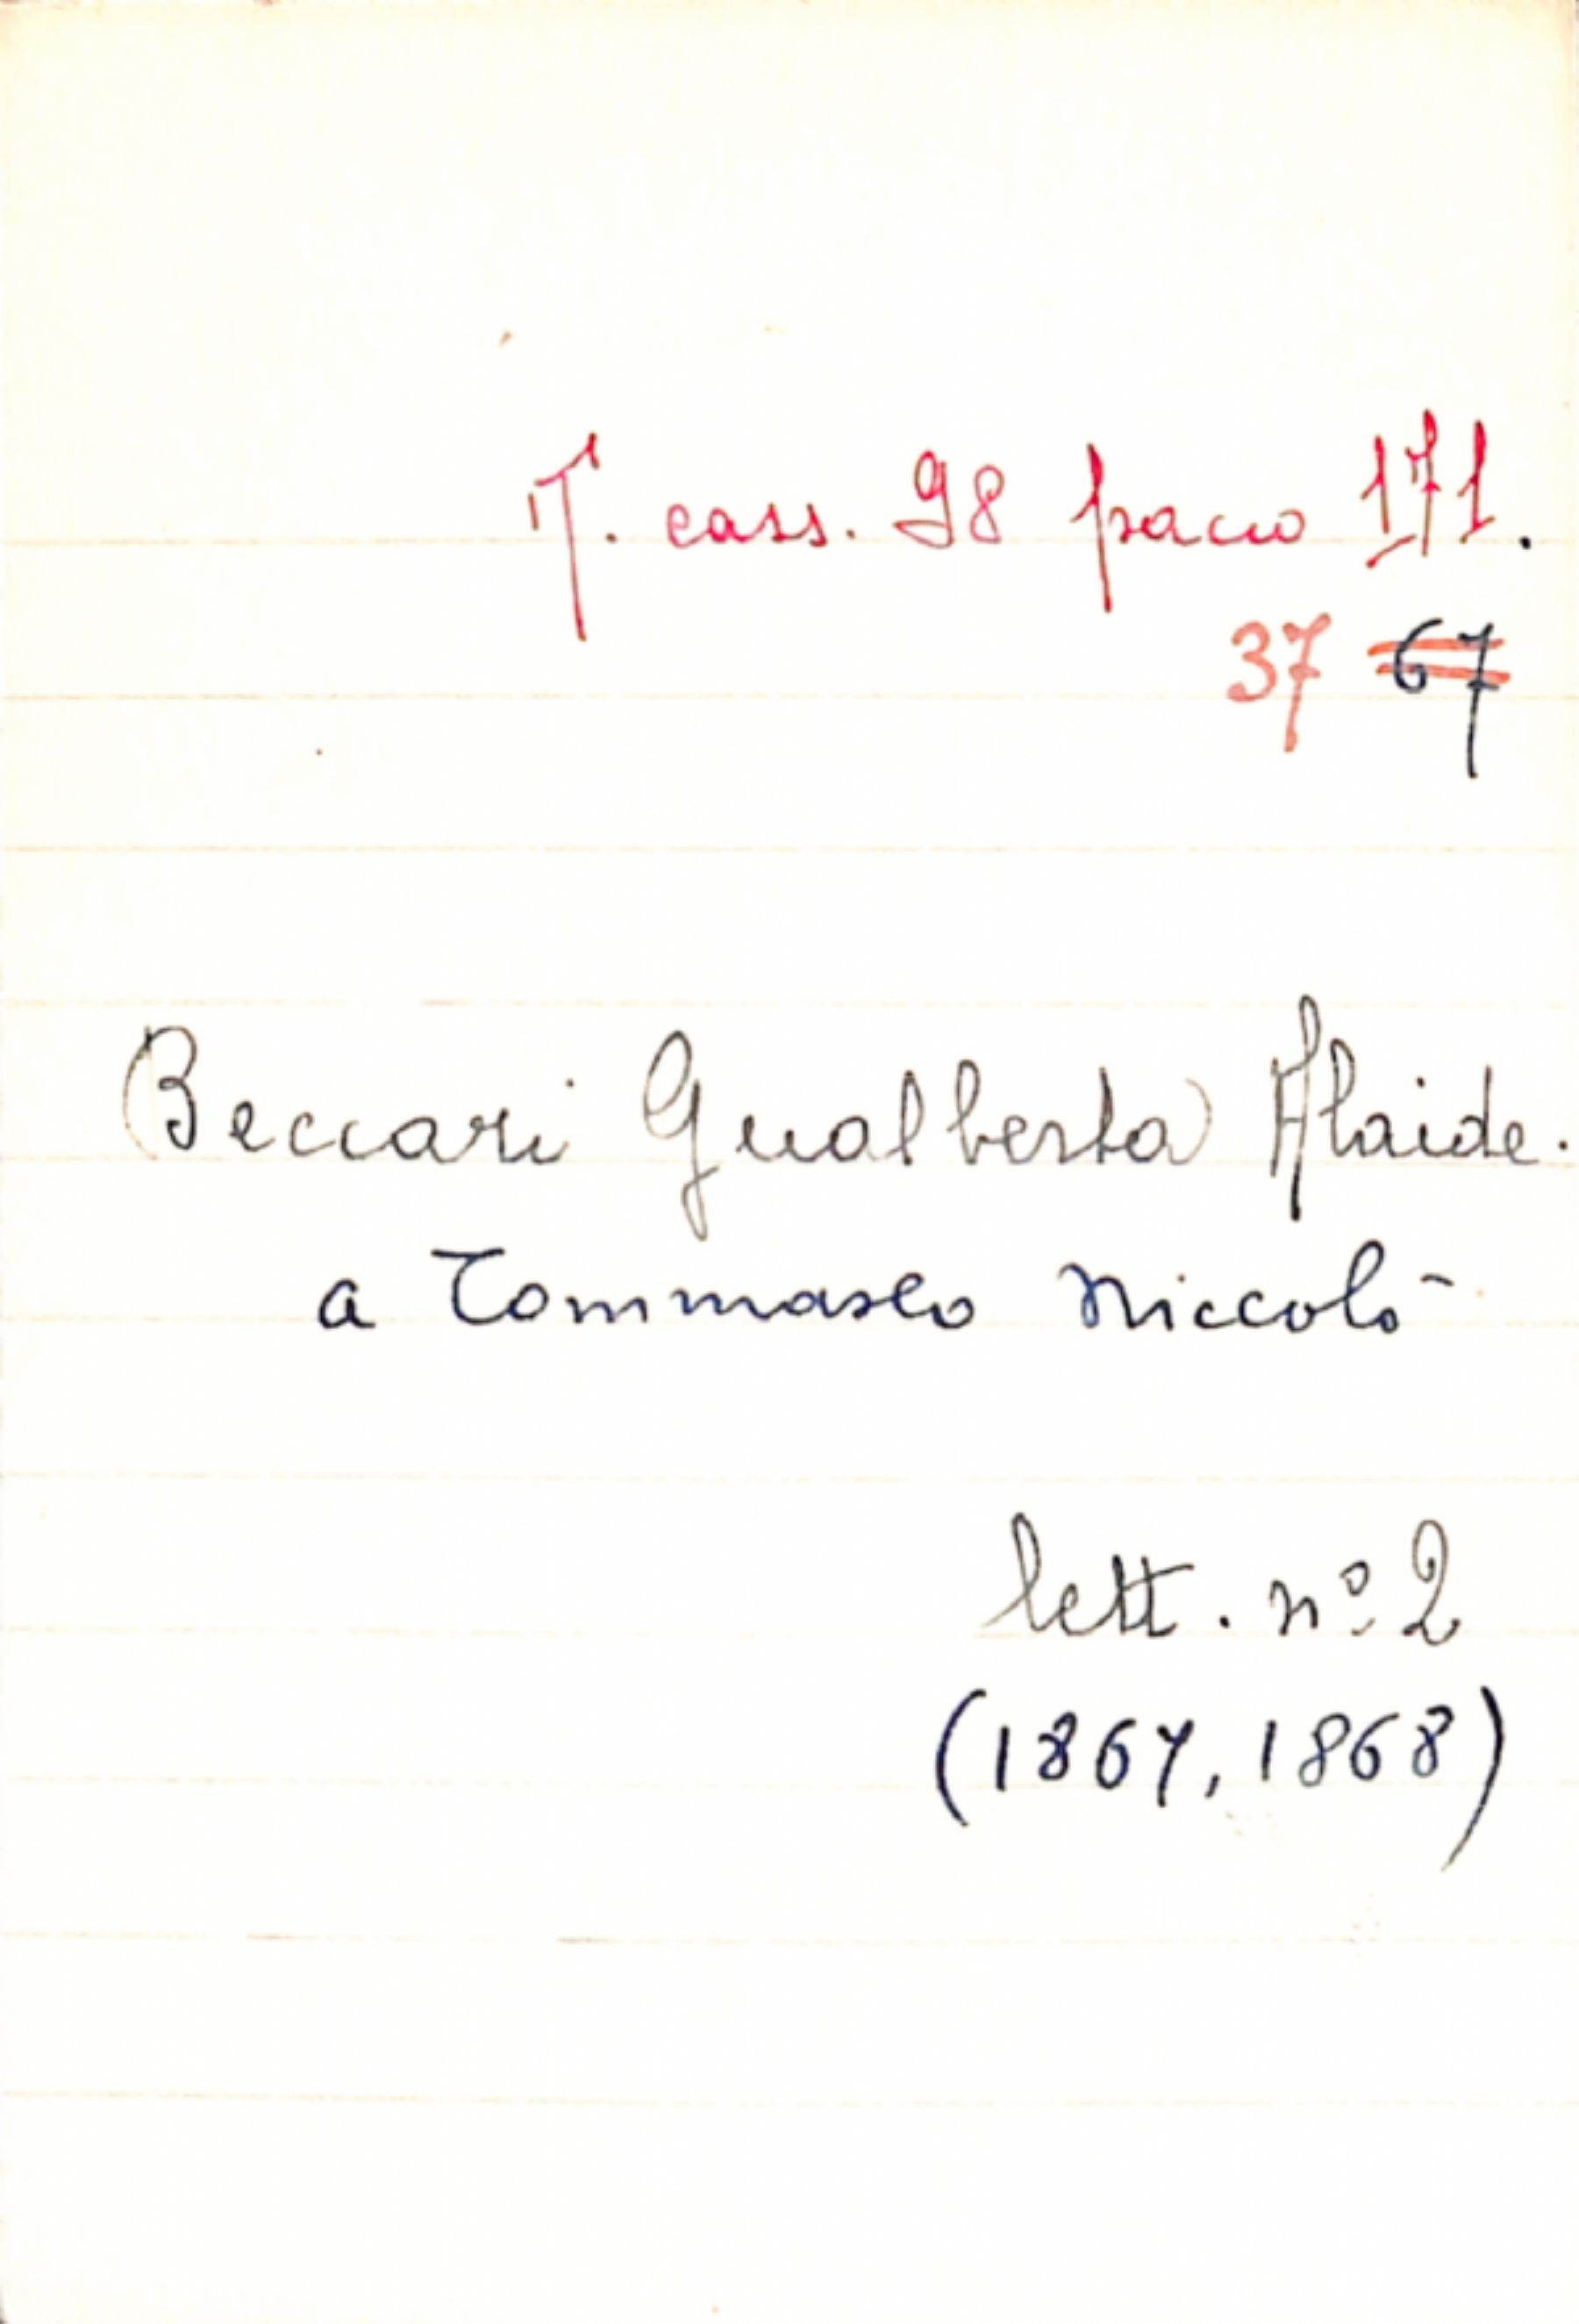 T. cass. 98 pacco 171.
37 67
Beccari Gualberta Alaide.
a Tommaseo Niccolò
lett. nº 2
(1867, 1868)